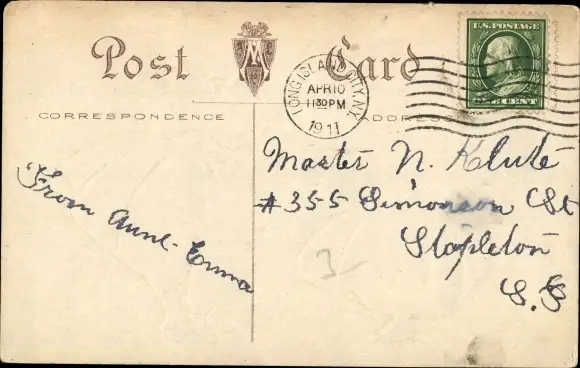 Post Card
U.S. POSTAGE
ONE CENT
LONG ISLAND CITY, N.Y.
APR 10
1130 PM
1911
CORRESPONDENCE
ADDRESS
From Aunt Emma
Master N. Klute
#355 Simonson St
Stapleton
S.I.
3